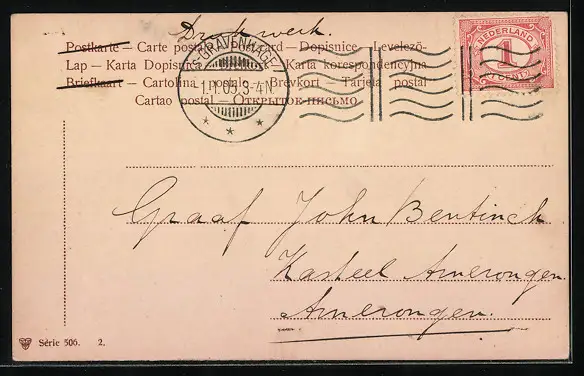 Drukwerk.
Postkarte – Carte postale – Post card – Dopisnice – Levelező-
Lap – Karta Dopisni – Karta korespondencyjna
Briefkaart – Cartolina postale – Brevkort – Tarjeta postal
Cartao postal – Открытое письмо
'S-GRAVENHAGE
3-4N
NEDERLAND
1
CENT
Graaf John Bentinck
Kasteel Amerongen.
Amerongen.
Série 506. 2.